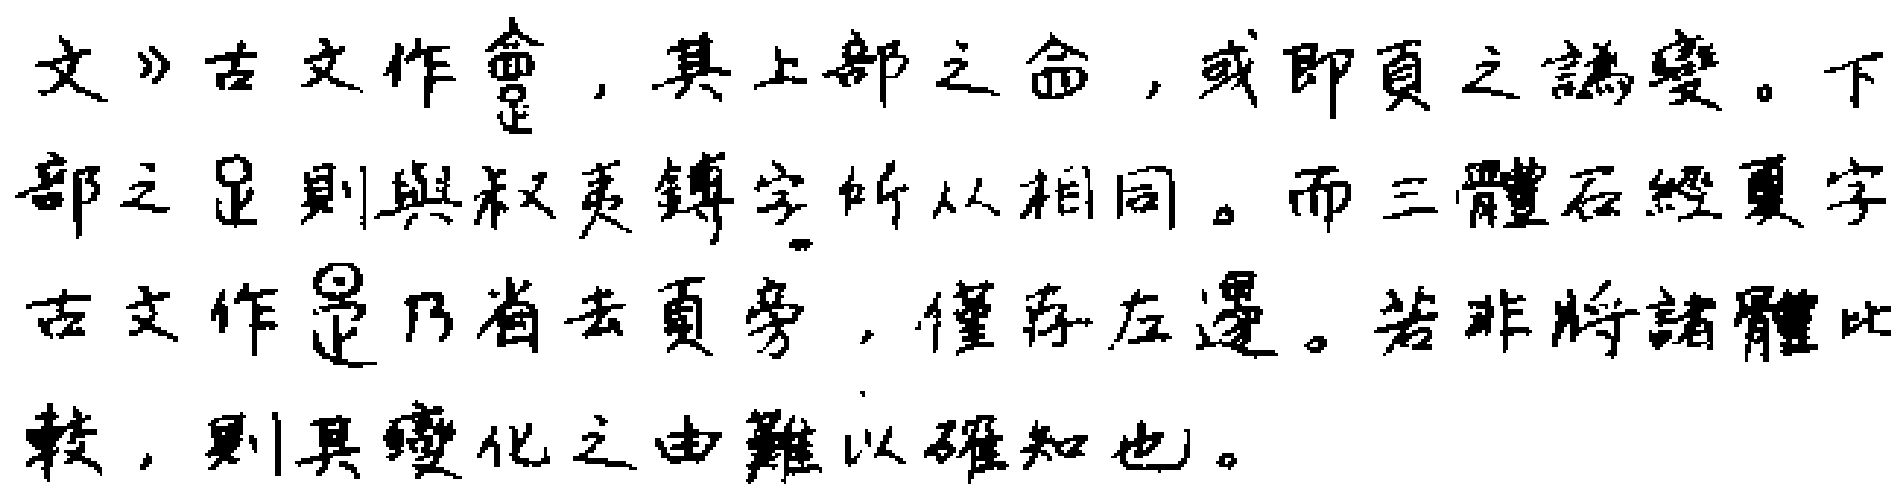 文》古文作,其上部之,或即頁之譌變。下
部之則與叔夷鎛字所从相同。而三體石經夏字
古文作乃省去頁旁,僅存左邊。若非將諸體比
較,則其變化之由難以確知也。